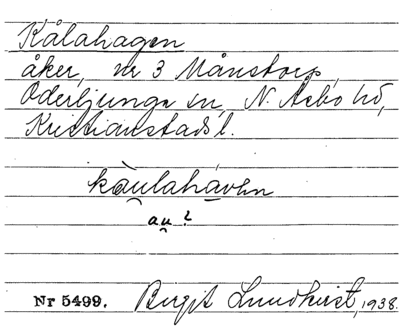 Kålahagen
åker, nr 3 Månstorp,
Oderljunga sn, N. Åsbo hd,
Kristianstads l.
kàu̯lahávhn
au̯ ?
Nr 5499. Birgit Lundkvist, 1938.